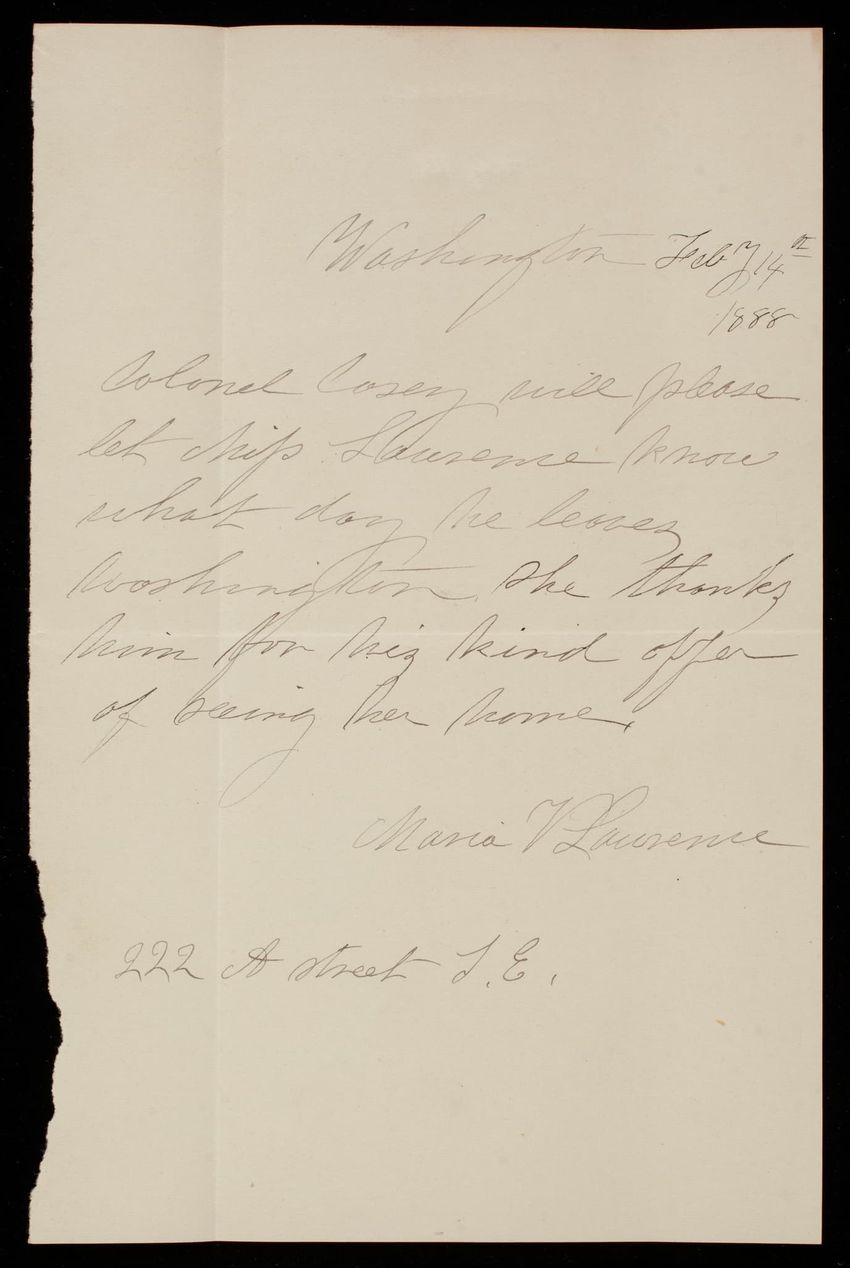 Washington Feby 14th
1888
Colonel Casey will please
let Miss Lawrence know
what day he leaves
Washington, she thanks
him for his kind offer
of seeing her home.
Maria V Lawrence
222 A street S.E.